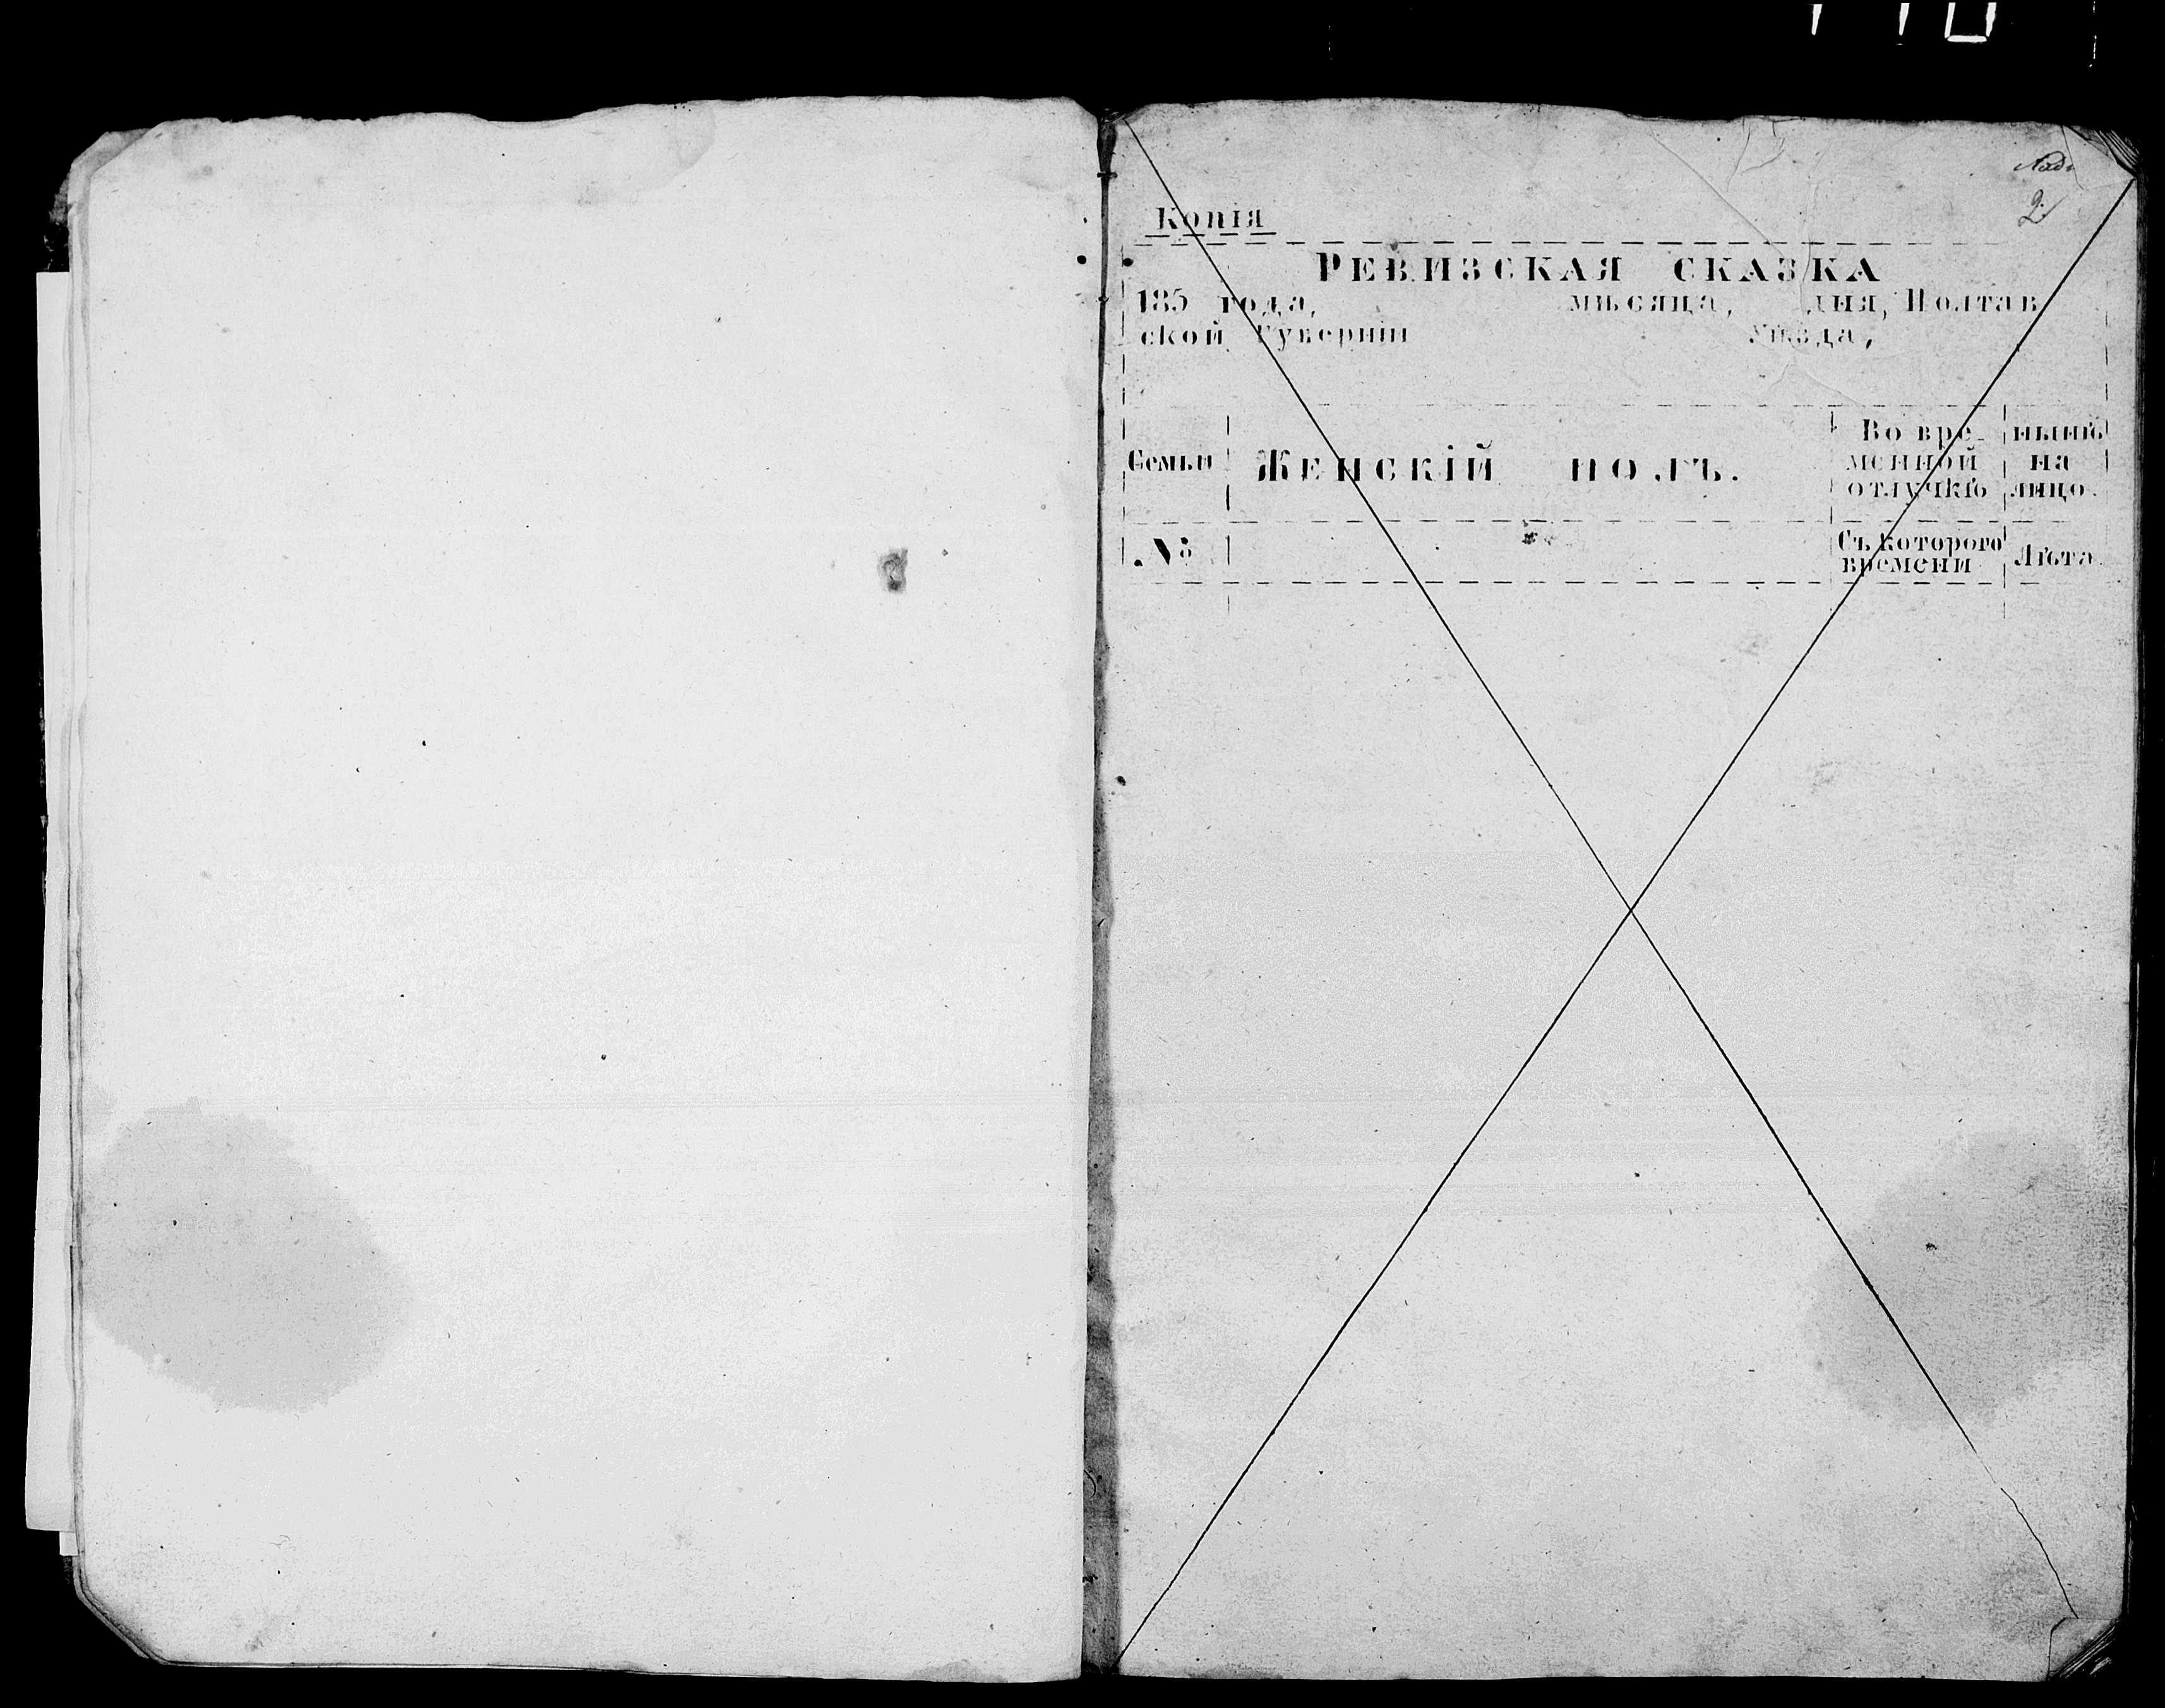 2
Копія
РЕВИЗСКАЯ СКАЗКА
185 года, мѣсяца, дня, Полтав
ской Губерніи Уѣзда,
Семьи
ЖЕНСКІЙ ПОЛЪ.
Во вре-
менной
отлучкѣ
нынѣ
на
лицо.
№
Съ котораго
времени
Лѣта